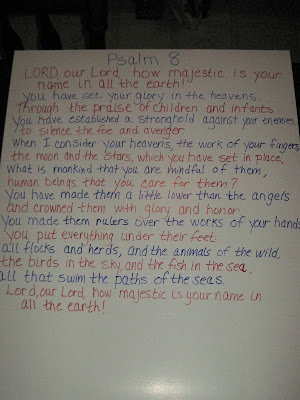 Psalm 8
LORD, our Lord, how majestic is your
name in all the earth!
You have set your glory in the heavens.
Through the praise of children and infants
You have established a stronghold against your enemies
to silence the foe and avenger.
When I consider your heavens, the work of your fingers,
the moon and the stars, which you have set in place,
what is mankind that you are mindful of them,
human beings that you care for them?
You have made them a little lower than the angels
and crowned them with glory and honor.
You made them rulers over the works of your hands
you put everything under their feet
all flocks and herds, and the animals of the wild,
the birds in the sky, and the fish in the sea,
all that swim the paths of the seas.
Lord, our Lord, how majestic is your name in
all the earth!